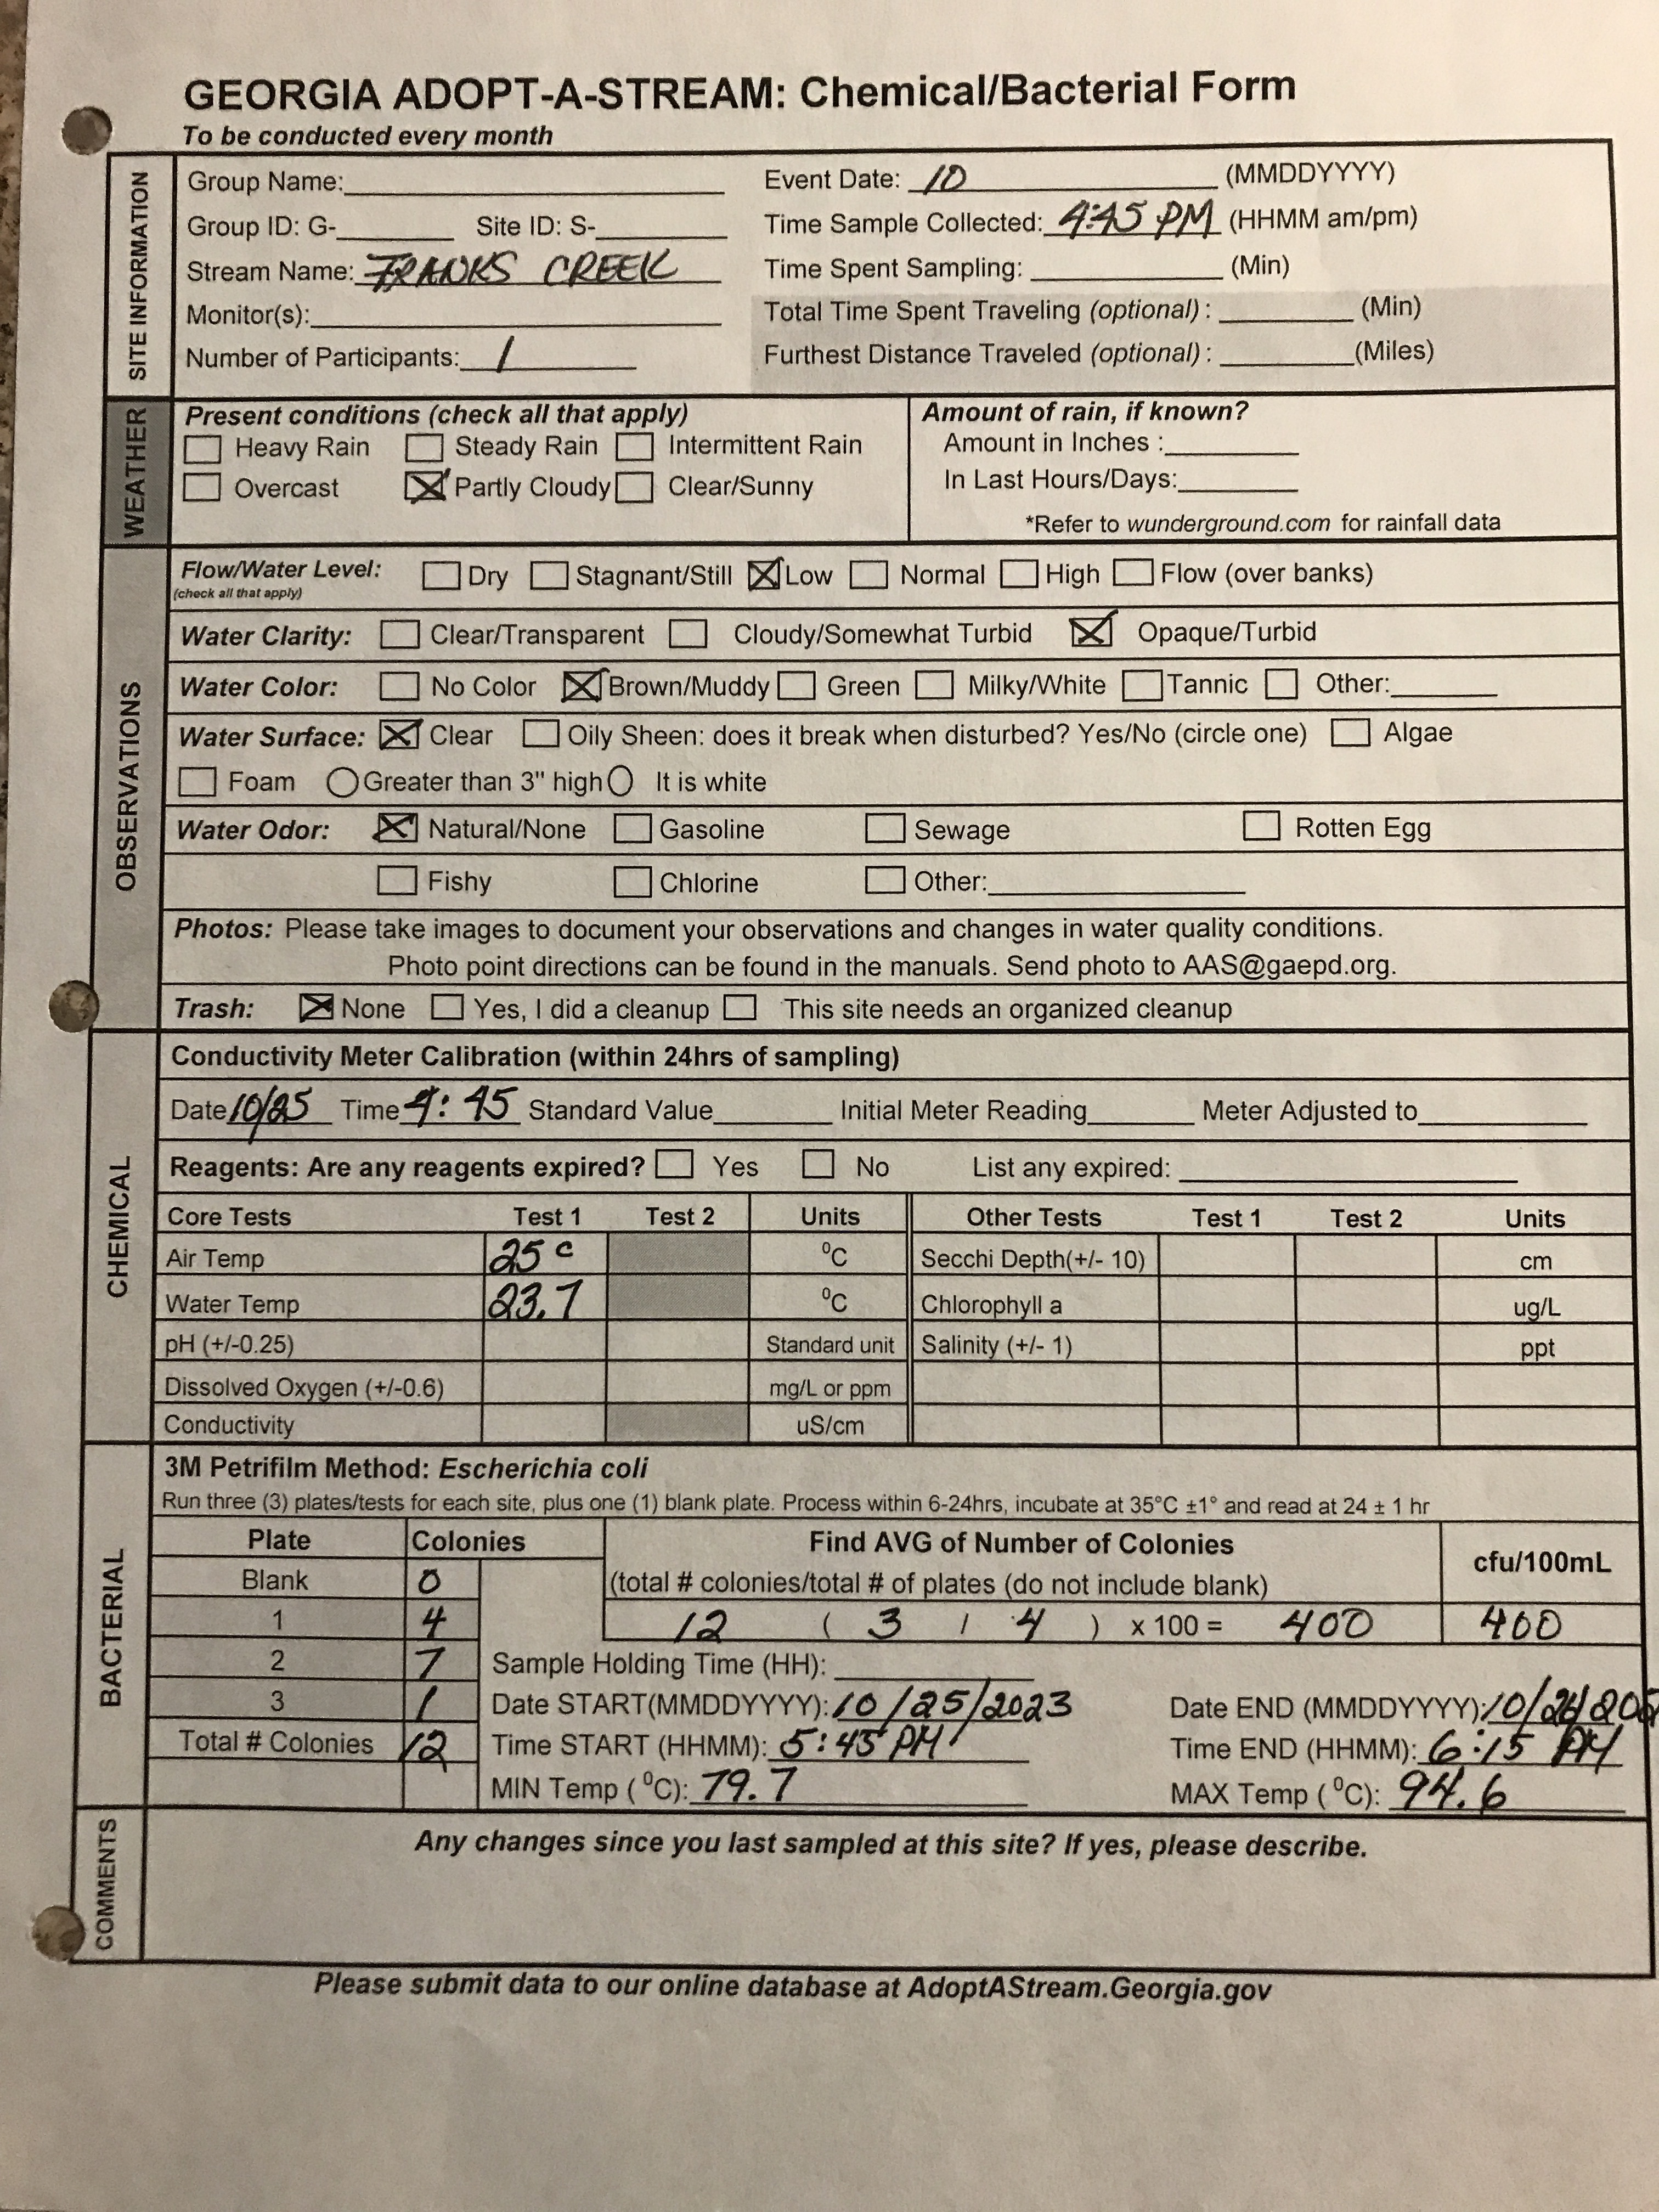 GEORGIA ADOPT-A-STREAM: Chemical/Bacterial Form
To be conducted every month
SITE INFORMATION
Group Name:
Event Date: 10 (MMDDYYYY)
Group ID: G- Site ID: S-
Time Sample Collected: 4:45 PM (HHMM am/pm)
Stream Name: FRANKS CREEK
Time Spent Sampling: (Min)
Monitor(s):
Total Time Spent Traveling (optional) : (Min)
Number of Participants: 1
Furthest Distance Traveled (optional) : (Miles)
WEATHER
Present conditions (check all that apply)
Heavy Rain Steady Rain Intermittent Rain
Overcast Partly Cloudy Clear/Sunny
Amount of rain, if known?
Amount in Inches :
In Last Hours/Days:
*Refer to wunderground.com for rainfall data
OBSERVATIONS
Flow/Water Level: Dry Stagnant/Still Low Normal High Flow (over banks)
(check all that apply)
Water Clarity: Clear/Transparent Cloudy/Somewhat Turbid Opaque/Turbid
Water Color: No Color Brown/Muddy Green Milky/White Tannic Other:
Water Surface: Clear Oily Sheen: does it break when disturbed? Yes/No (circle one) Algae
Foam Greater than 3" high It is white
Water Odor: Natural/None Gasoline Sewage Rotten Egg
Fishy Chlorine Other:
Photos: Please take images to document your observations and changes in water quality conditions.
Photo point directions can be found in the manuals. Send photo to AAS@gaepd.org.
Trash: None Yes, I did a cleanup This site needs an organized cleanup
CHEMICAL
Conductivity Meter Calibration (within 24hrs of sampling)
Date 10/25 Time 4:45 Standard Value Initial Meter Reading Meter Adjusted to
Reagents: Are any reagents expired? Yes No List any expired:
Core Tests Test 1 Test 2 Units Other Tests Test 1 Test 2 Units
Air Temp 25 c ⁰C Secchi Depth(+/- 10) cm
Water Temp 23.7 ⁰C Chlorophyll a ug/L
pH (+/-0.25) Standard unit Salinity (+/- 1) ppt
Dissolved Oxygen (+/-0.6) mg/L or ppm
Conductivity uS/cm
BACTERIAL
3M Petrifilm Method: Escherichia coli
Run three (3) plates/tests for each site, plus one (1) blank plate. Process within 6-24hrs, incubate at 35°C ±1° and read at 24 ± 1 hr
Plate Colonies Find AVG of Number of Colonies cfu/100mL
Blank 0 (total # colonies/total # of plates (do not include blank)
1 4 12 ( 3 / 4 ) x 100 = 400 400
2 7 Sample Holding Time (HH):
3 1 Date START(MMDDYYYY): 10/25/2023 Date END (MMDDYYYY):
Total # Colonies 12 Time START (HHMM): 5:45 PM Time END (HHMM): 6:15 PM
MIN Temp ( ⁰C): 79.7 MAX Temp ( ⁰C): 94.6
COMMENTS
Any changes since you last sampled at this site? If yes, please describe.
Please submit data to our online database at AdoptAStream.Georgia.gov